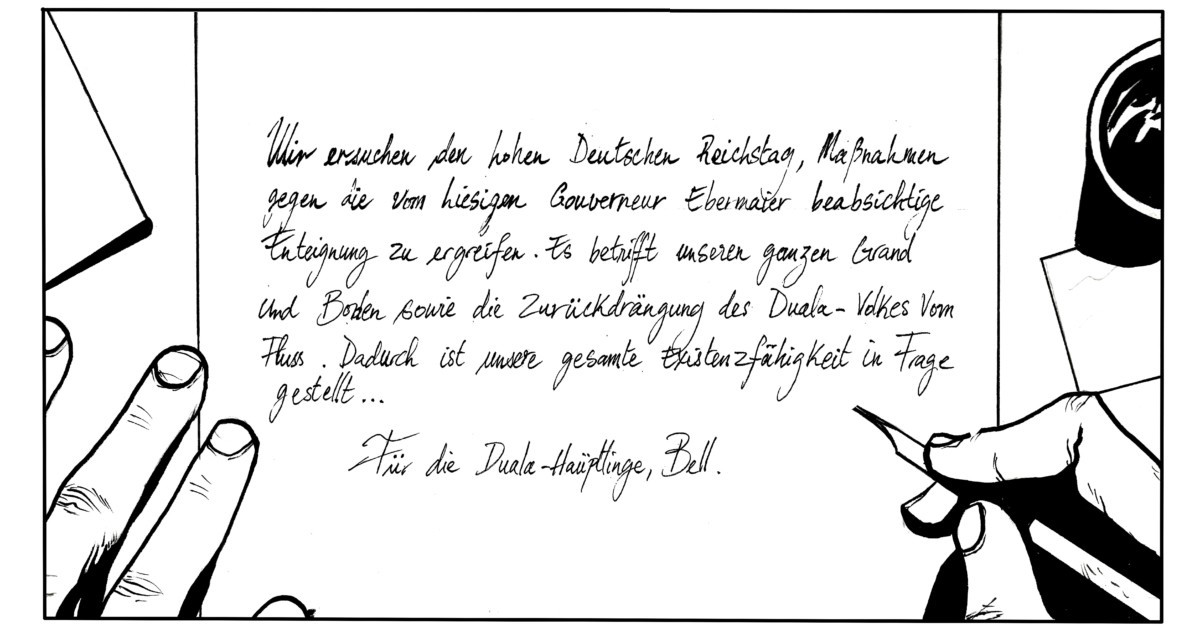 Wir ersuchen den hohen Deutschen Reichstag, Maßnahmen
gegen die vom hiesigen Gouverneur Ebermaier beabsichtige
Enteignung zu ergreifen. Es betrifft unseren ganzen Grand
und Boden sowie die Zurückdrängung des Duala-Volkes vom
Fluss. Dadurch ist unsere gesamte Existenzfähigkeit in Frage
gestellt...
Für die Duala-Haüptlinge, Bell.